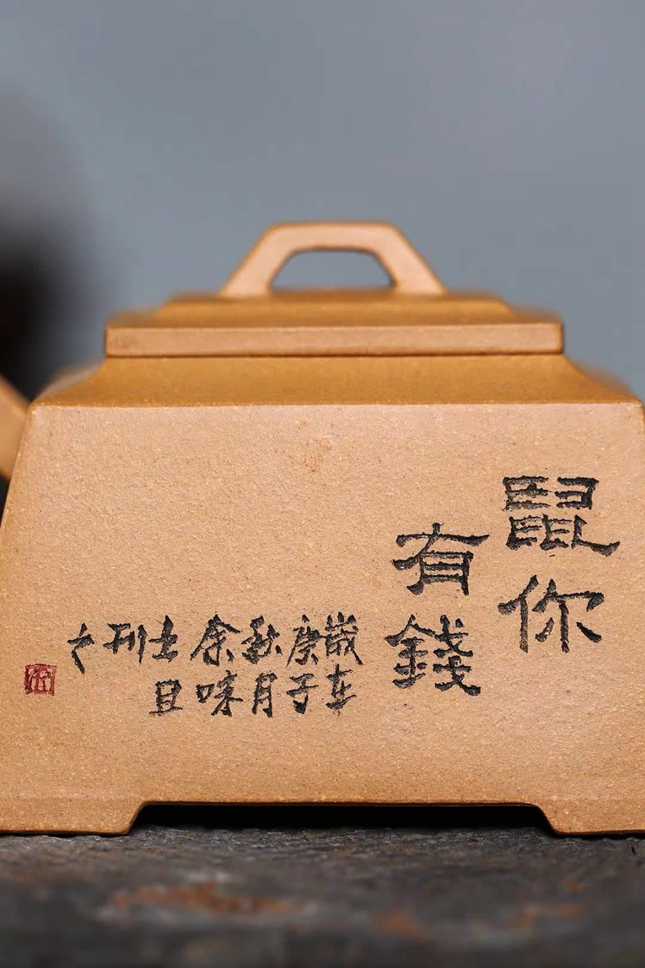 鼠你
有錢
歲在
庚子
秋月
余味
刊
之